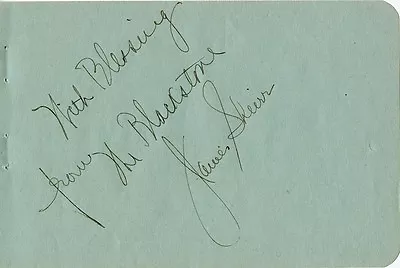 With Blessing
from The Blackstone
James